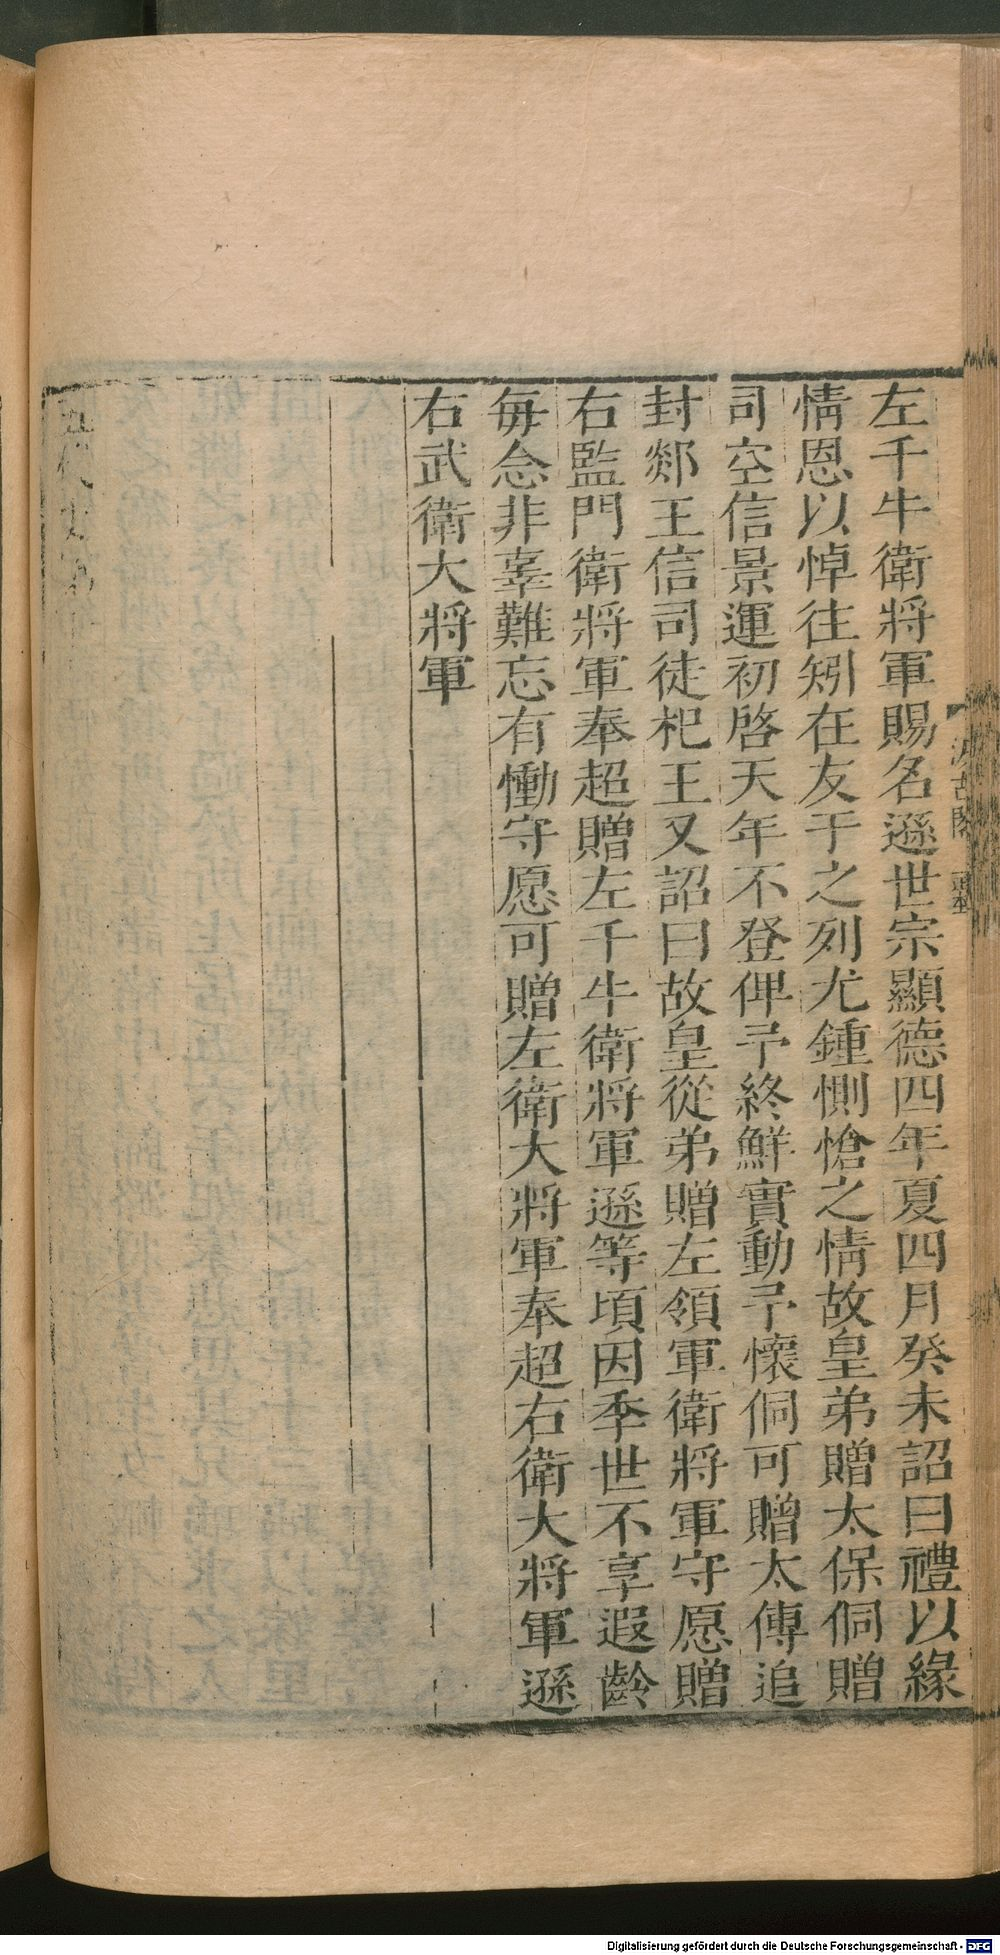 左千牛衛將軍賜名遜世宗顯德四年夏四月癸未詔曰禮以緣
情恩以悼往矧在友于之列尤鍾惻愴之情故皇弟贈太保侗贈
司空信景運初啓天年不登俾予終鮮實動予懷侗可贈太傅追
封郯王信司徒杞王又詔曰故皇從弟贈左領軍衛將軍守愿贈
右監門衛將軍奉超贈左千牛衛將軍遜等頃因季世不享遐齡
每念非辜難忘有慟守愿可贈左衛大將軍奉超右衛大將軍遜
右武衛大將軍
Digitalisierung gefördert durch die Deutsche Forschungsgemeinschaft - DFG